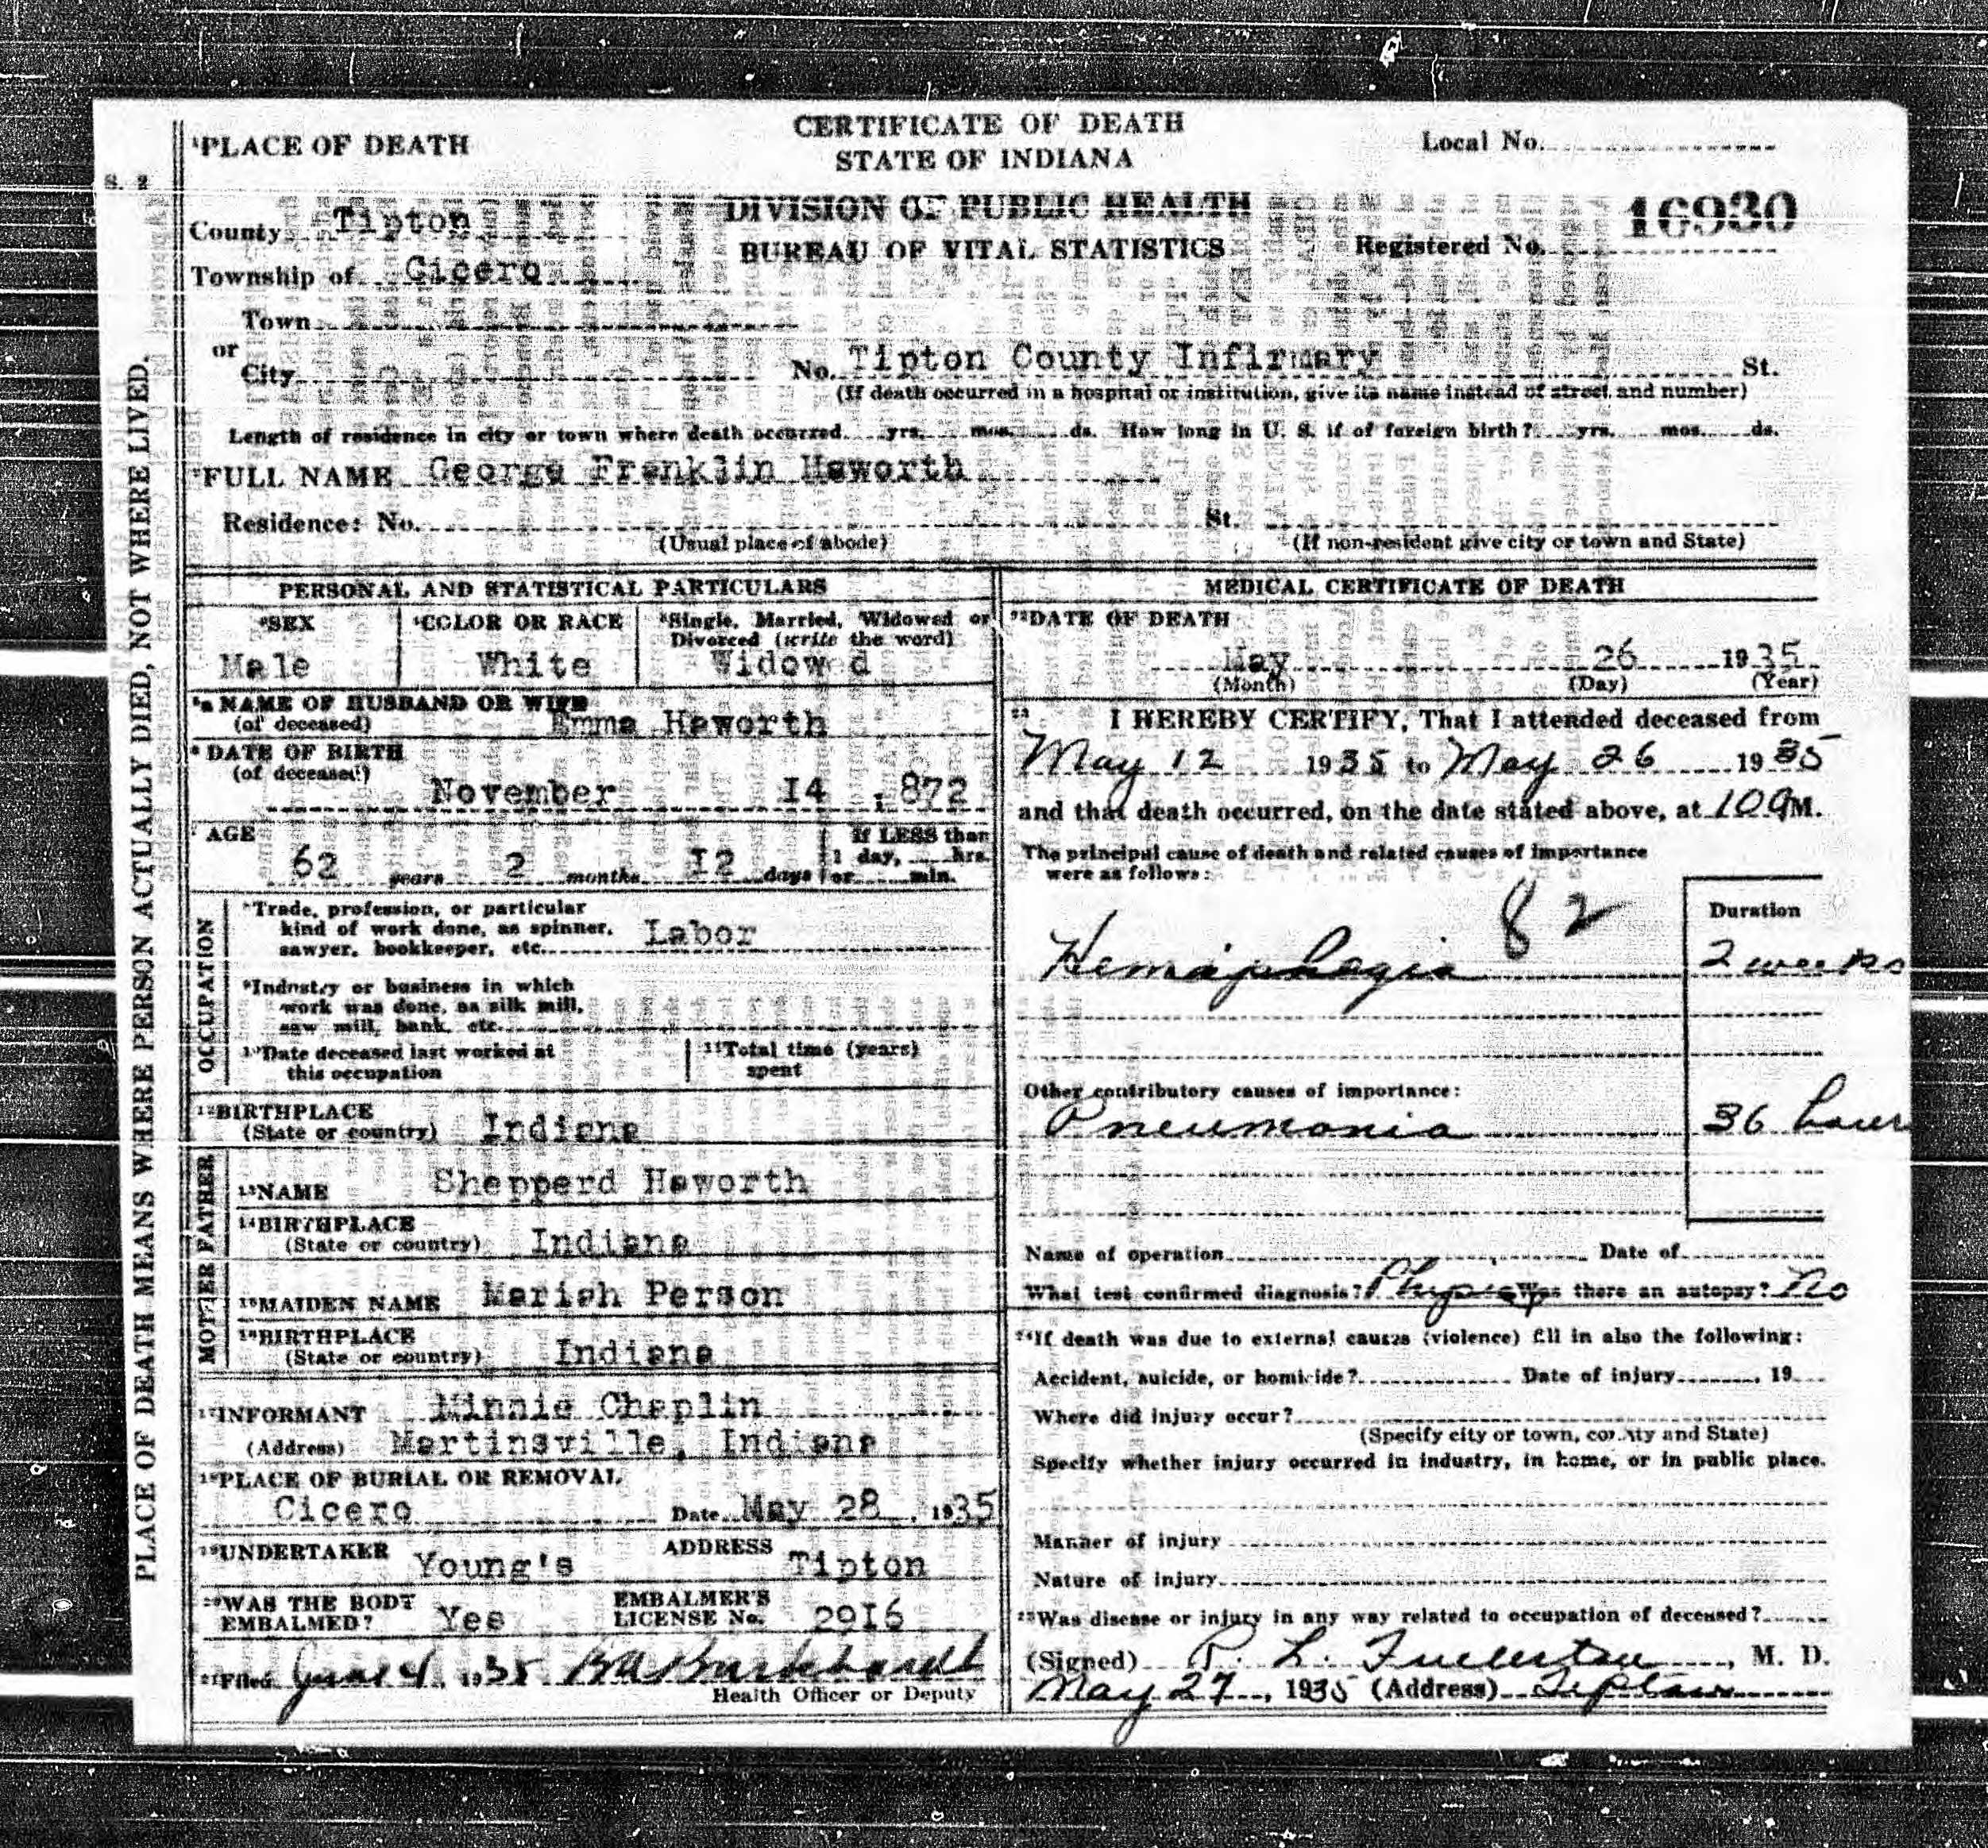 ¹PLACE OF DEATH
CERTIFICATE OF DEATH
STATE OF INDIANA
Local No.
S. 2
DIVISION OF PUBLIC HEALTH
BUREAU OF VITAL STATISTICS
16930
Registered No.
County Tipton
Township of Cicero
Town
or
City
No. Tipton County Infirmary St.
(If death occurred in a hospital or institution, give its name instead of street and number)
Length of residence in city or town where death occurred yrs. mos. ds. How long in U. S. if of foreign birth? yrs. mos. ds.
²FULL NAME George Franklin Haworth
Residence: No. St.
(Usual place of abode) (If non-resident give city or town and State)
PLACE OF DEATH MEANS WHERE PERSON ACTUALLY DIED, NOT WHERE LIVED.
PERSONAL AND STATISTICAL PARTICULARS
³SEX ⁴COLOR OR RACE ⁵Single, Married, Widowed or
Divorced (write the word)
Male White Widowed
⁵a NAME OF HUSBAND OR WIFE
(of deceased) Emma Haworth
⁶ DATE OF BIRTH
(of deceased)
November 14 , 872
⁷ AGE If LESS than
62 years 2 months 12 days 1 day, hrs.
or min.
OCCUPATION
⁸Trade, profession, or particular
kind of work done, as spinner,
sawyer, bookkeeper, etc. Labor
⁹Industry or business in which
work was done, as silk mill,
saw mill, bank, etc.
¹⁰Date deceased last worked at
this occupation
¹¹Total time (years)
spent
¹²BIRTHPLACE
(State or country) Indiana
FATHER
¹³NAME Shepperd Haworth
¹⁴BIRTHPLACE
(State or country) Indiana
MOTHER
¹⁵MAIDEN NAME Mariah Person
¹⁶BIRTHPLACE
(State or country) Indiana
¹⁷INFORMANT Minnie Chaplin
(Address) Martinsville, Indiana
¹⁸PLACE OF BURIAL OR REMOVAL
Cicero Date May 28 , 1935
¹⁹UNDERTAKER Young's ADDRESS Tipton
²⁰WAS THE BODY
EMBALMED? Yes
EMBALMER'S
LICENSE No. 2916
²¹Filed June 4, 1935 Burkhardt
Health Officer or Deputy
MEDICAL CERTIFICATE OF DEATH
²²DATE OF DEATH
May 26 1935
(Month) (Day) (Year)
²³ I HEREBY CERTIFY, That I attended deceased from
May 12 1935 to May 26 1935
and that death occurred, on the date stated above, at M.
The principal cause of death and related causes of importance
were as follows:
82
Duration
Hemaphegia 2 weeks
Other contributory causes of importance:
Pneumonia 36 hours
Name of operation Date of
What test confirmed diagnosis? Was there an autopsy? No
²⁴If death was due to external causes (violence) fill in also the following:
Accident, suicide, or homicide? Date of injury , 19
Where did injury occur?
(Specify city or town, county and State)
Specify whether injury occurred in industry, in home, or in public place.
Manner of injury
Nature of injury
²⁵Was disease or injury in any way related to occupation of deceased?
(Signed) L. Fullerton, M. D.
May 27, 1935 (Address) Tipton